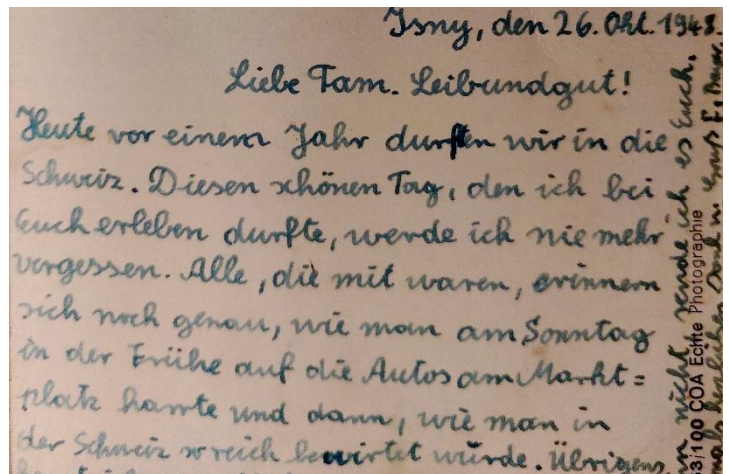 Isny, den 26. Okt. 1948.
Liebe Fam. Leibundgut!
Heute vor einem Jahr durften wir in die
Schweiz. Diesen schönen Tag, den ich bei
Euch erleben durfte, werde ich nie mehr
vergessen. Alle, die mit waren, erinnern
sich noch genau, wie man am Sonntag
in der Frühe auf die Autos am Markt=
platz harrte und dann, wie man in
der Schweiz so reich bewirtet wurde. Übrigens,
nicht sende ich es Euch.
100 COA Echte Photographie